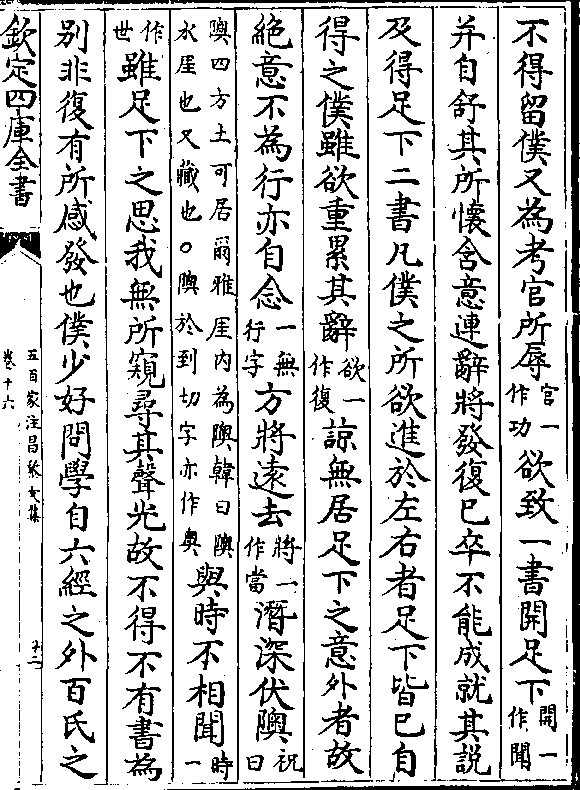 不得留僕又為考官所辱官一作功欲致一書開足下開一作聞
并自舒其所懷含意連辭將發復已卒不能成就其説
及得足下二書凡僕之所欲進於左右者足下皆已自
得之僕雖欲重累其辭欲一作復諒無居足下之意外者故
絶意不為行亦自念一無行字方將遠去將一作當潛深伏隩祝曰
隩四方土可居爾雅厓内為隩韓曰隩水厓也又藏也○隩於到切字亦作奥與時不相聞時一
作世雖足下之思我無所窺尋其聲光故不得不有書為
别非復有所感發也僕少好問學自六經之外百氏之
欽定四庫全書
五百家注昌黎文集
卷十六
十二